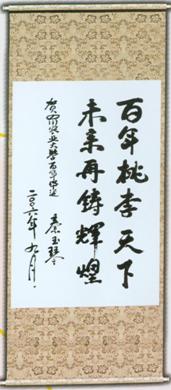 百年桃李天下
未来再鑄輝煌
贺四川农业大学百年华诞
秦玉琴
二〇〇六年九月